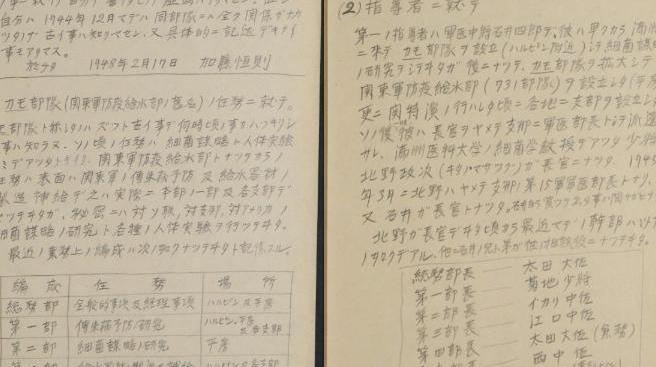 自分ハ1944年12月マデハ同部隊ニハ全ク関係ガナカ
ツタノデ古イ事ハ知リマセン、又具体的ニ記述デキナイ
事モアリマス。
1948年2月17日 加藤恒則
カモ部隊(関東軍防疫給水部ノ旧名)ノ任務ニ就テ。
部隊ト称シタハズット古イ事デ何時頃ノ事カハッキリシ
事ハ知ラヌ、ソノ頃ノ任務ハ細菌謀略ト人体実験
関東軍防疫給水部トナッタカラノ
任務ハ表面ハ関東軍ノ傳染病予防及給水器材ノ
補給デ之ハ実際ニ本部ノ一部及各支部デ
秘密ニハ対ソ聯、対支那、対アメリカノ
細菌謀略ノ研究ト各種ノ人体実験ヲ行ッテヰタ。
最近ノ業務上ノ編成ハ次ノ如クナッテヰタト記憶スル。
編成 任務 場所
総務部 全般的事項及経理事項 ハルピン及平房
第一部 傳染病予防ノ研究 ハルピン、平房及各支部
第二部 細菌謀略ノ研究 平房
(2)指導者ニ就テ
第一ノ指導者ハ軍医中将石井四郎デ、彼ハ早クカラ満洲
ニ来テカモ部隊ヲ設立(ハルピン附近)シテ細菌謀略
ノ研究ヲシテヰタガ後ニナッテ、カモ部隊ヲ拡大シテ
関東軍防疫給水部(731部隊)ヲ設立シタ(平房
更ニ関特演ノ行ハレタ頃ニ各地ニ支部ヲ設立シタ
ソノ後彼ハ長官ヲヤメテ支那ニ軍医部長トシテ派遣
サレ、満洲医科大学ノ細菌学教授デアッタ少将
北野政次(キタノマサツグ)ガ長官ニナッタ、1945
年3月ニ北野ハヤメテ支那ノ第13軍軍医部長トナリ、
又石井ガ長官トナッタ。
北野ガ長官デヰタ頃カラ最近マデノ幹部ハ以下
ノ如クデアル、
総務部長 太田大佐
第一部長 菊地少将
第二部長 イカリ中佐
第三部長 江口中佐
第四部長 太田大佐(兼務)
西中佐